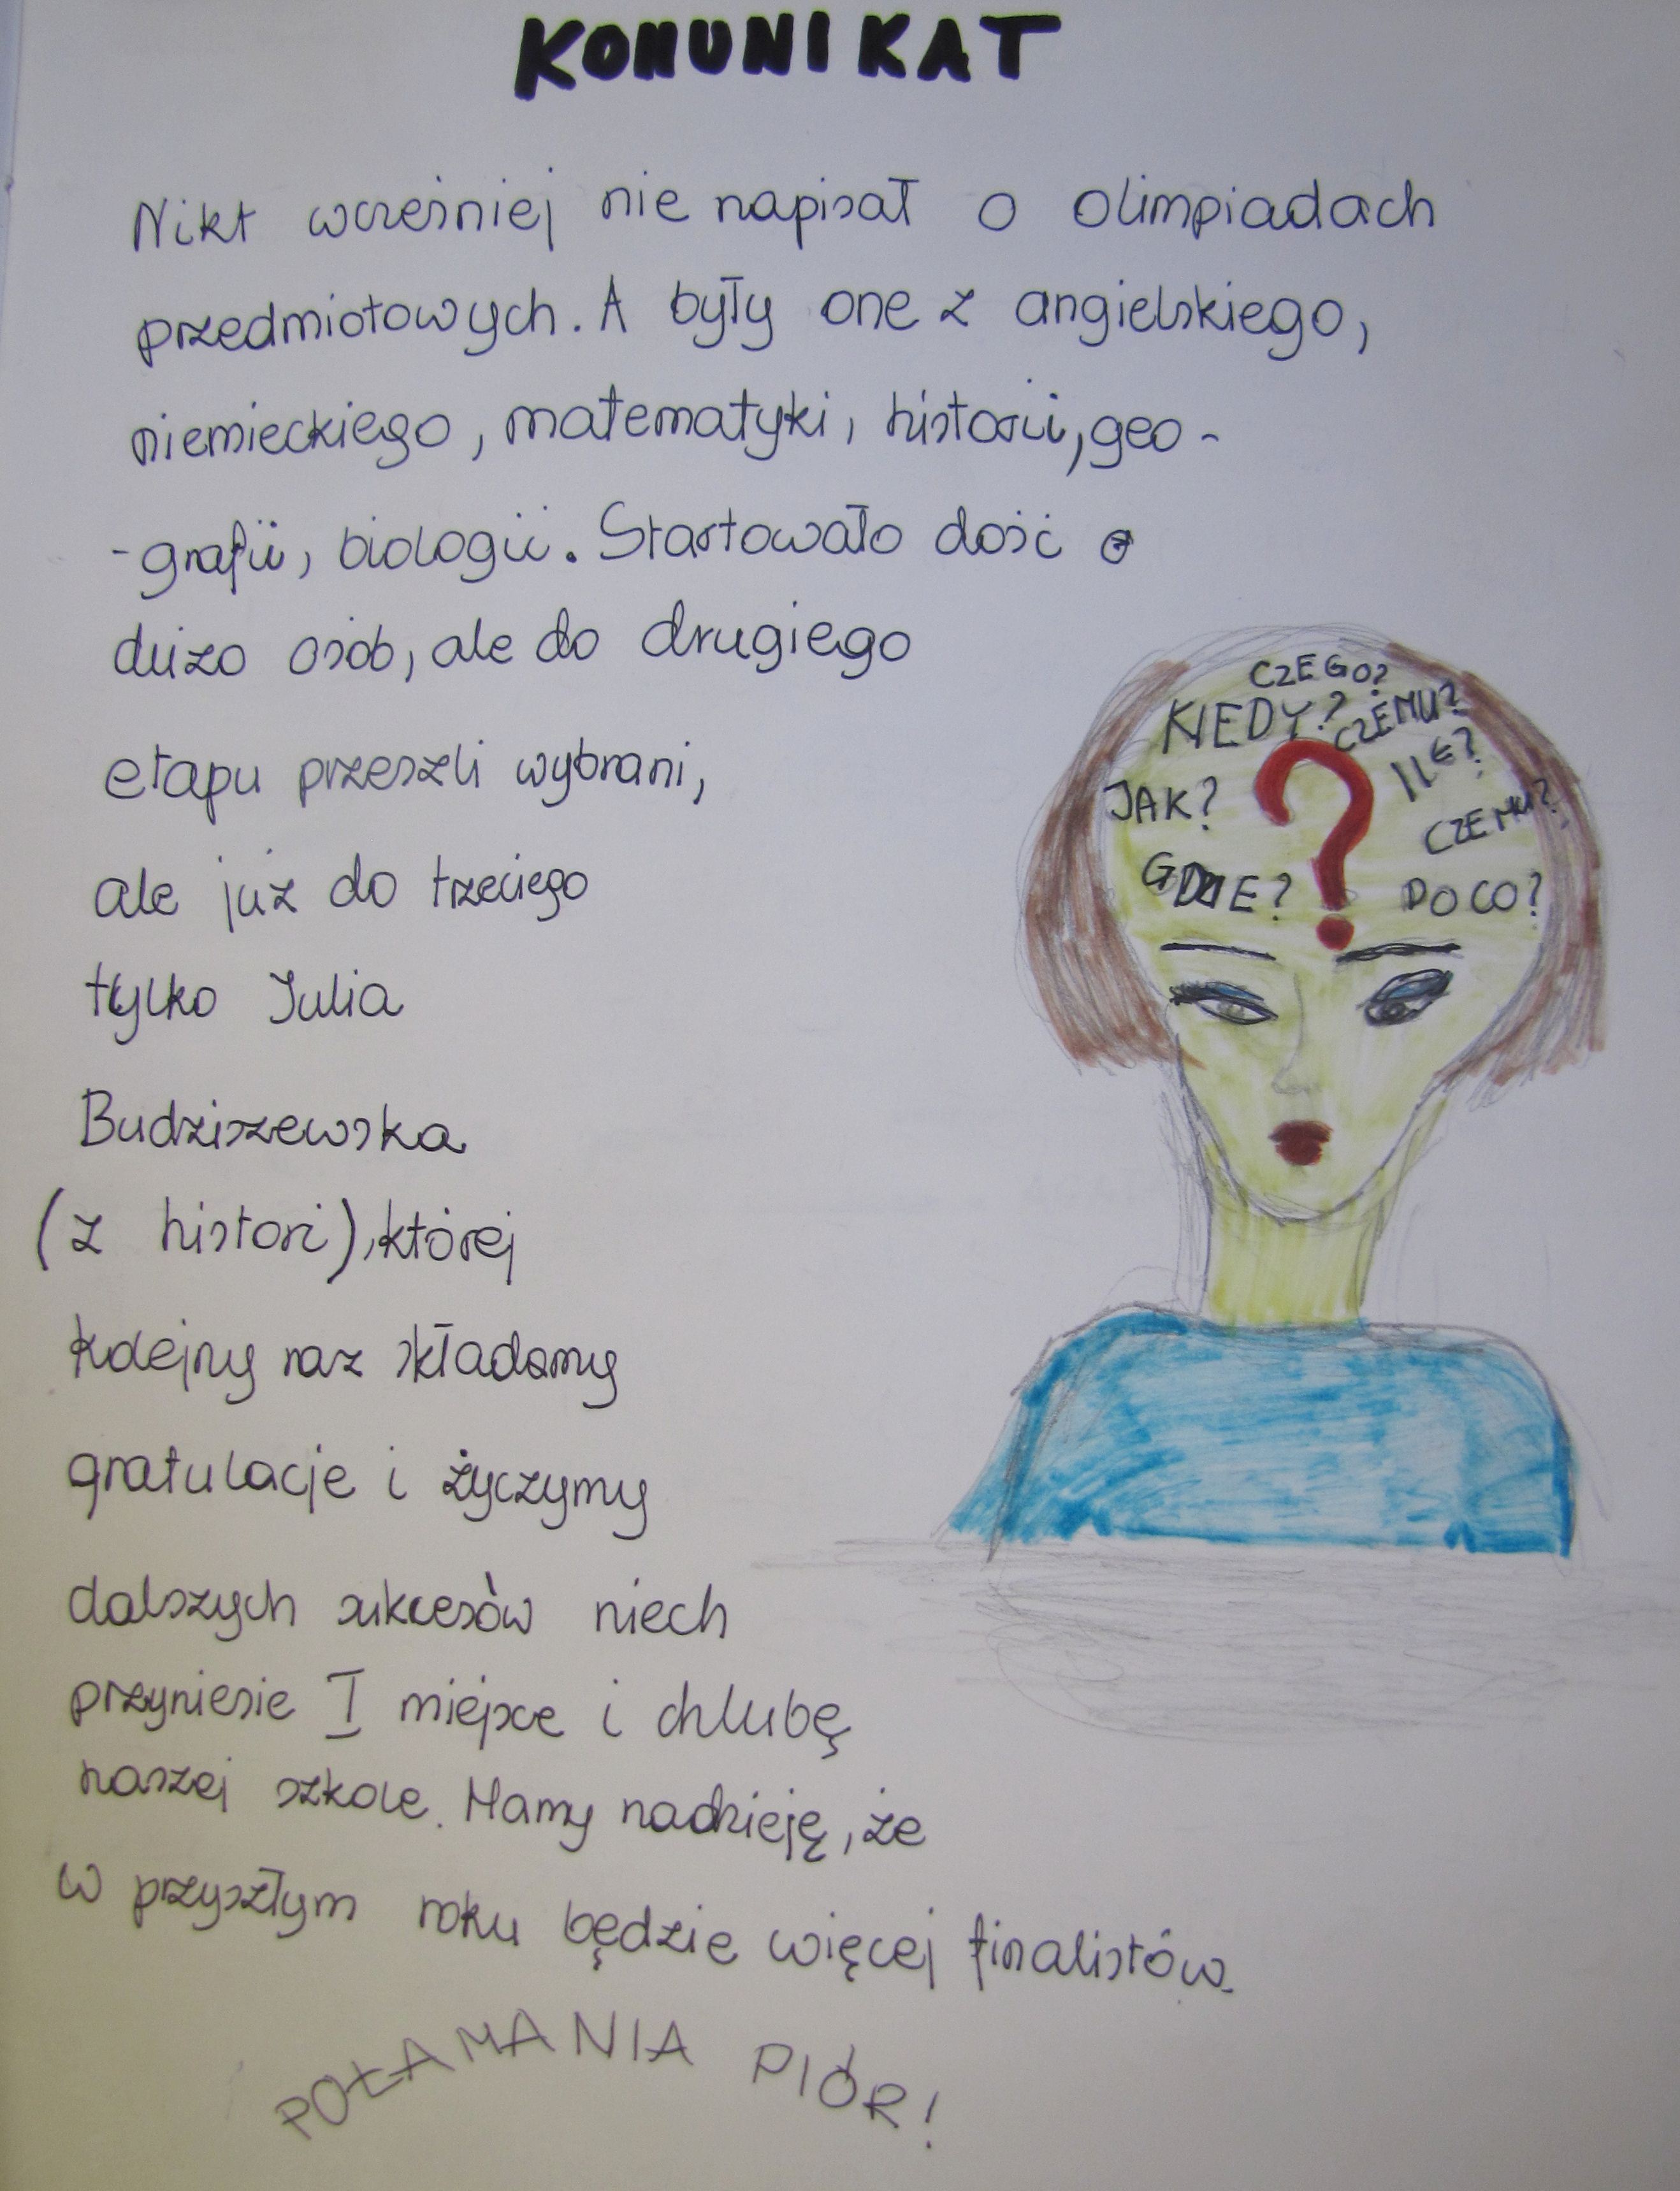 KOMUNIKAT
Nikt wcześniej nie napisał o olimpiadach
przedmiotowych. A były one z angielskiego,
niemieckiego, matematyki, historii, geo-
-grafii, biologii. Startowało dość
dużo osób, ale do drugiego
etapu przeszli wybrani,
ale już do trzeciego
tylko Julia
Budziszewska
(z histori), której
kolejny raz składamy
gratulacje i życzymy
dalszych sukcesów niech
przyniesie I miejsce i chlubę
naszej szkole. Mamy nadzieję, że
w przyszłym roku będzie więcej finalistów.
POŁAMANIA PIÓR!
CZEGO?
KIEDY?
CZEMU?
ILE?
JAK?
?
CZEMU?
GDZIE?
PO CO?